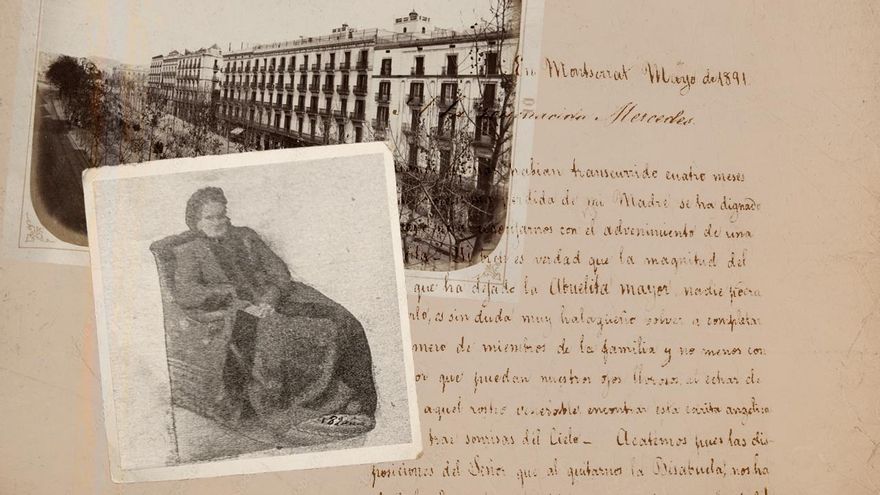 En Montserrat Mayo de 1891.
Mercedes.
habian transcurrido cuatro meses
de mi Madre se ha dignado
con el advenimiento de una
es verdad que la magnitud del
que ha dejado la Abuelita mayor, nadie podra
es sin duda muy halagueño volver a completar
mero de miembros de la familia y no menos con
or que puedan nuestros ojos llorosos, al echar de
aquel rostro venerable encontrar esta carita angelica
trae sonrisas del Cielo_ Acatemos pues las dis
posiciones del Señor que al quitarnos la Bisabuela, nos ha